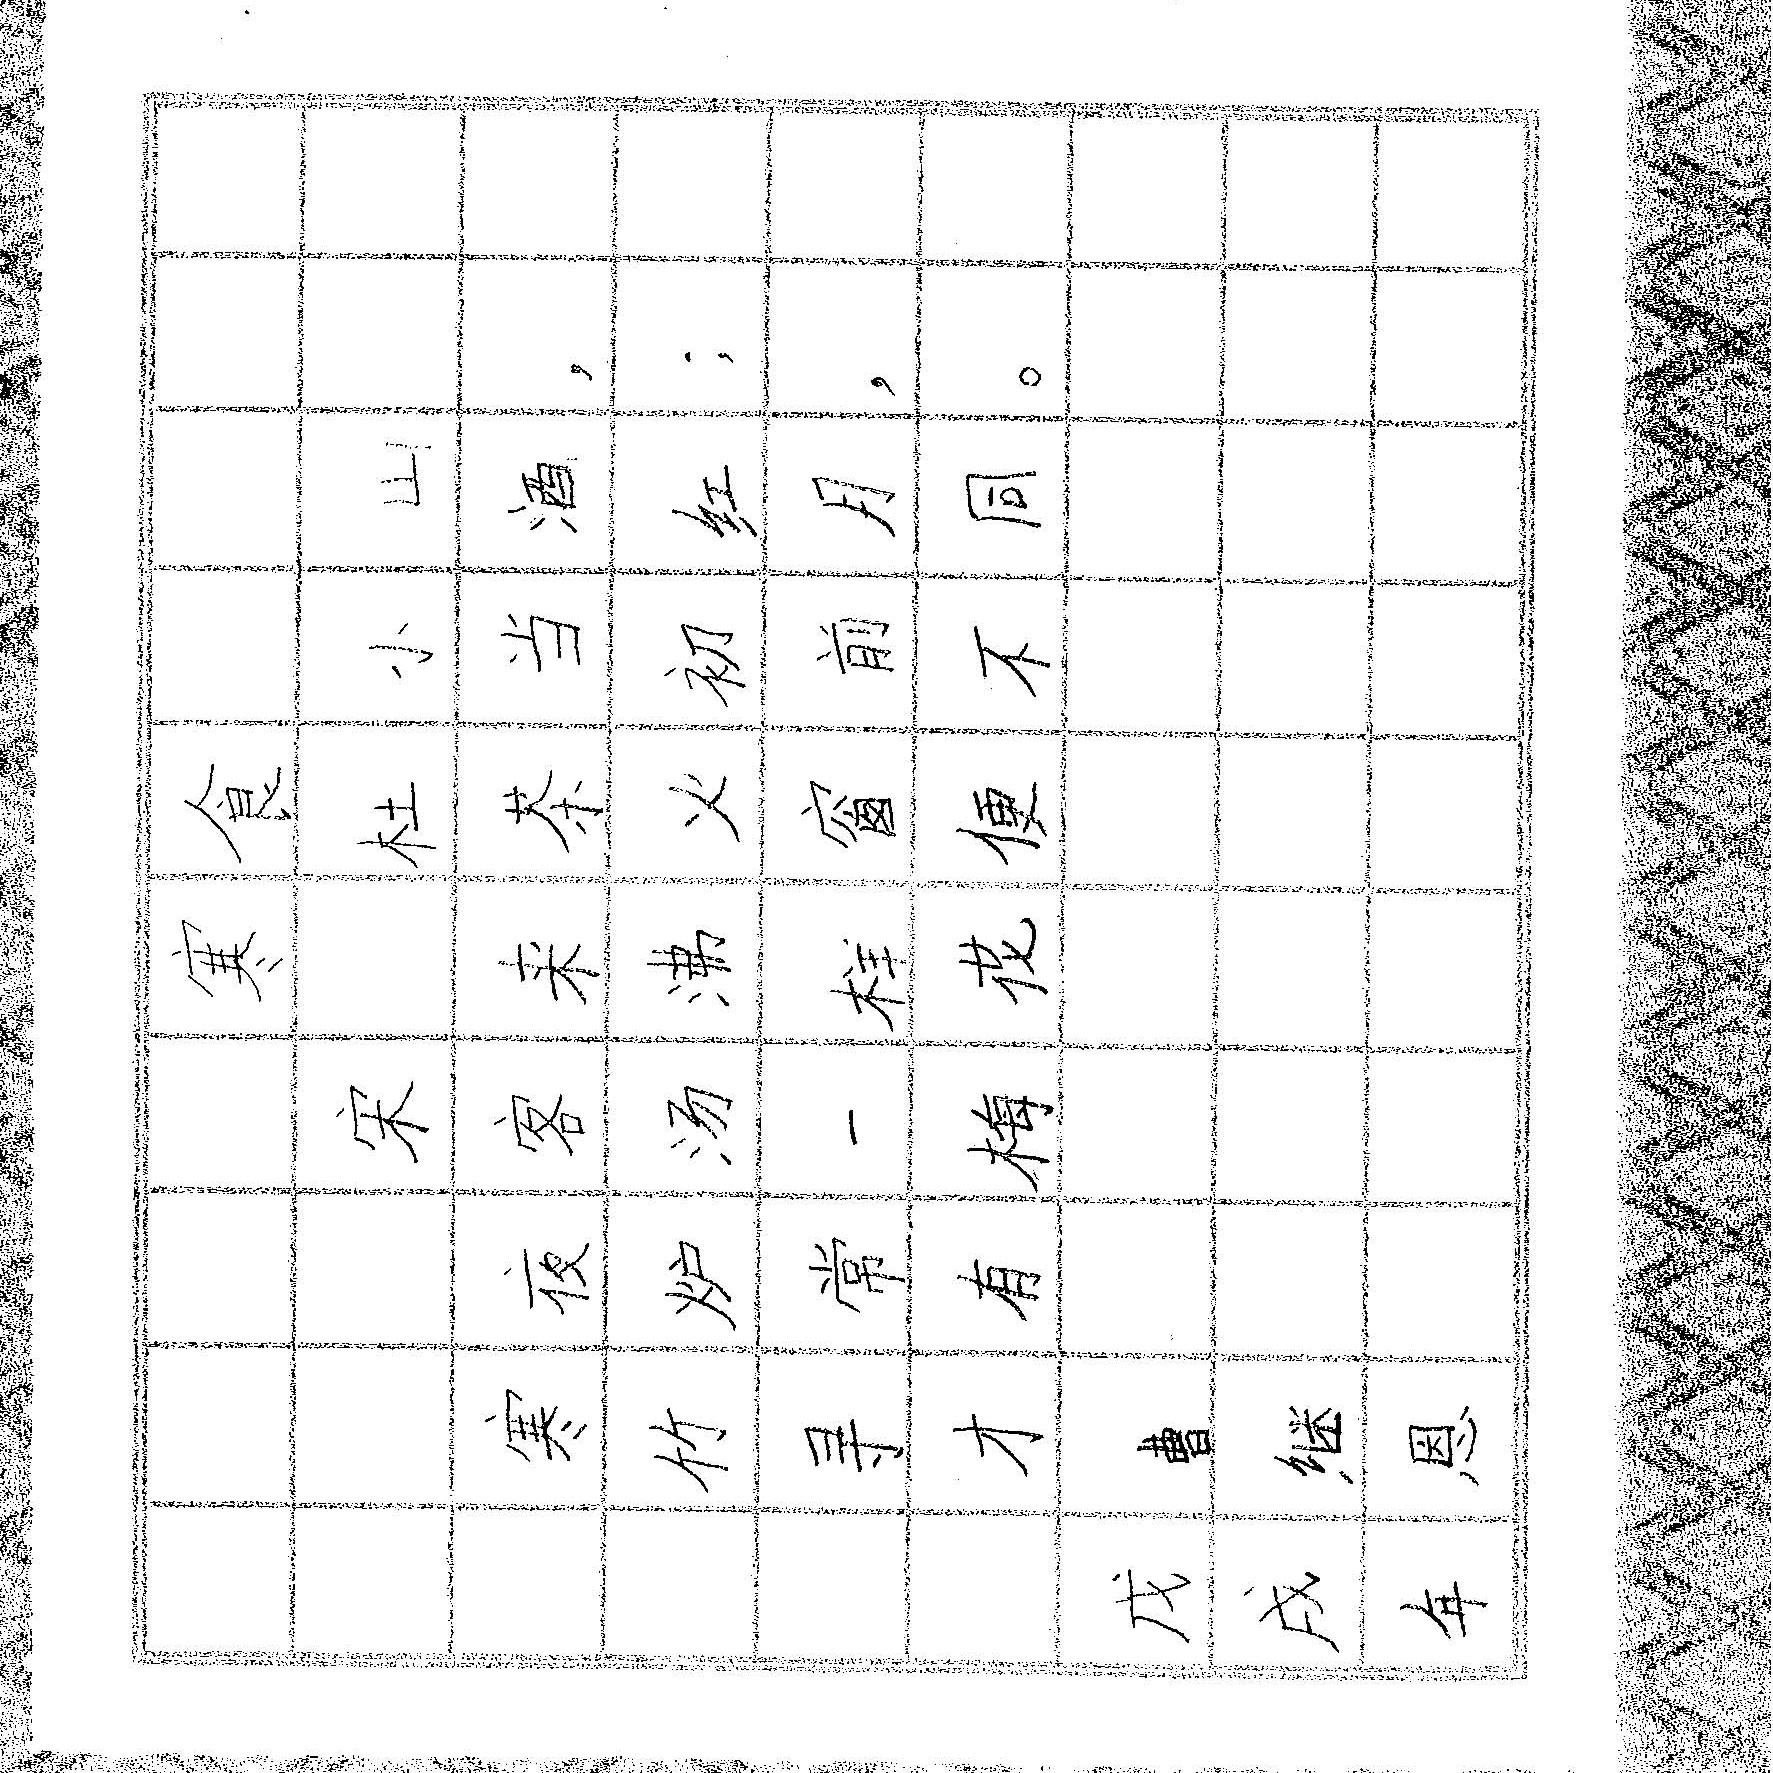 寒食
宋 杜小山
寒夜客来茶当酒，
竹炉汤沸火初红；
寻常一样窗前月，
才有梅花便不同。
戊戌年
曹继恩